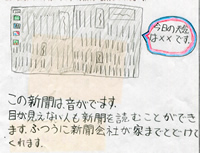 今日の天気
は××です。
この新聞は、音がでます。
目が見えない人も新聞を読むことができ
ます。ふつうに新聞会社が家までとどけて
くれます。